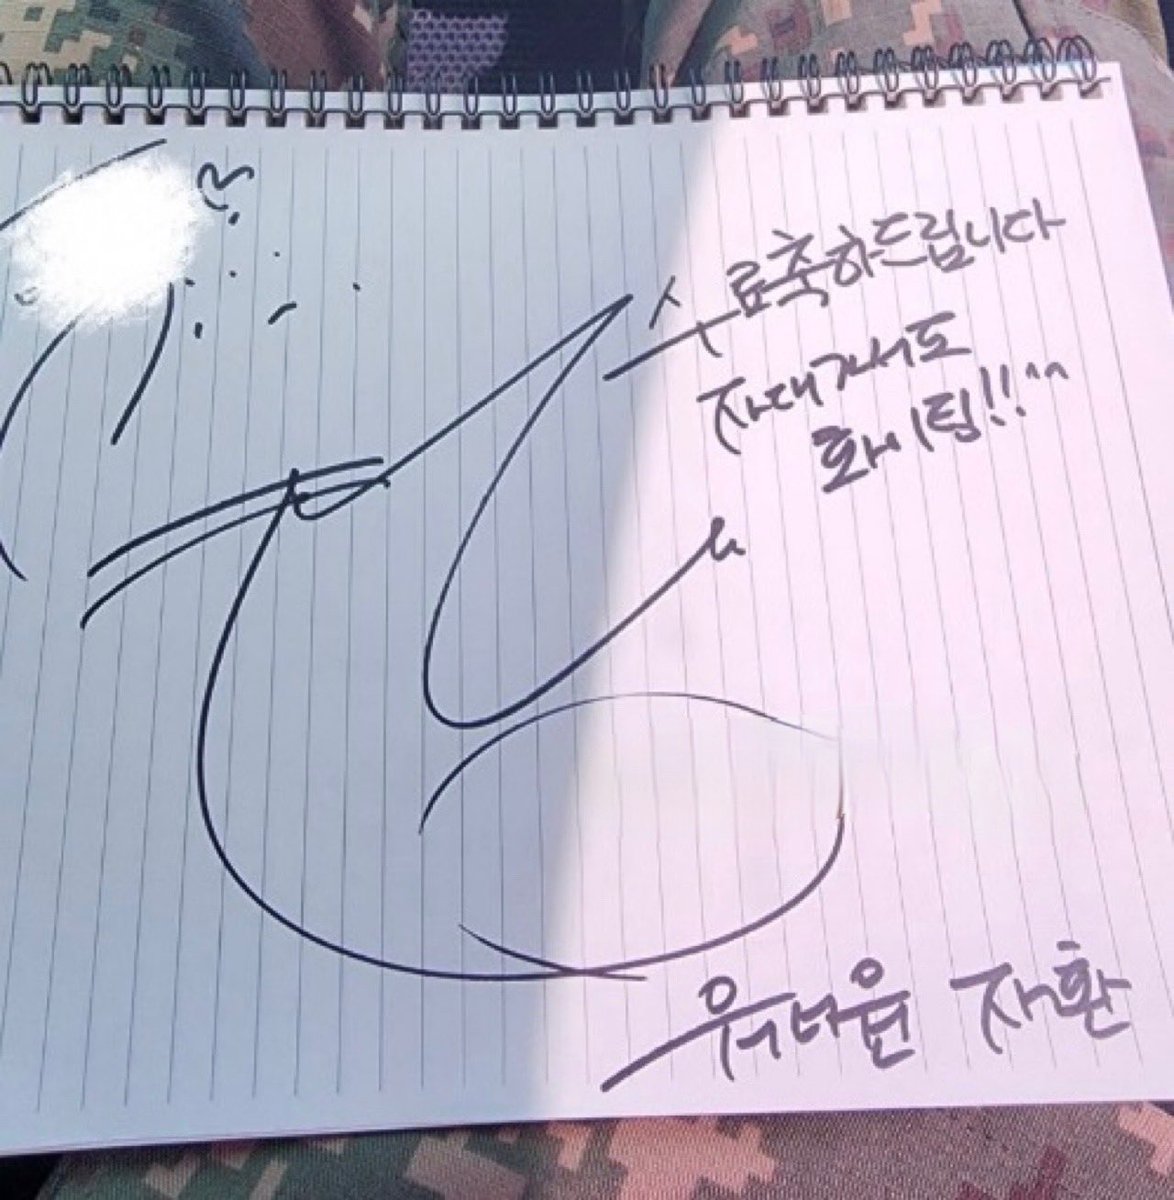 수료축하드립니다
자대가서도
화이팅!!^^
워너원 재환